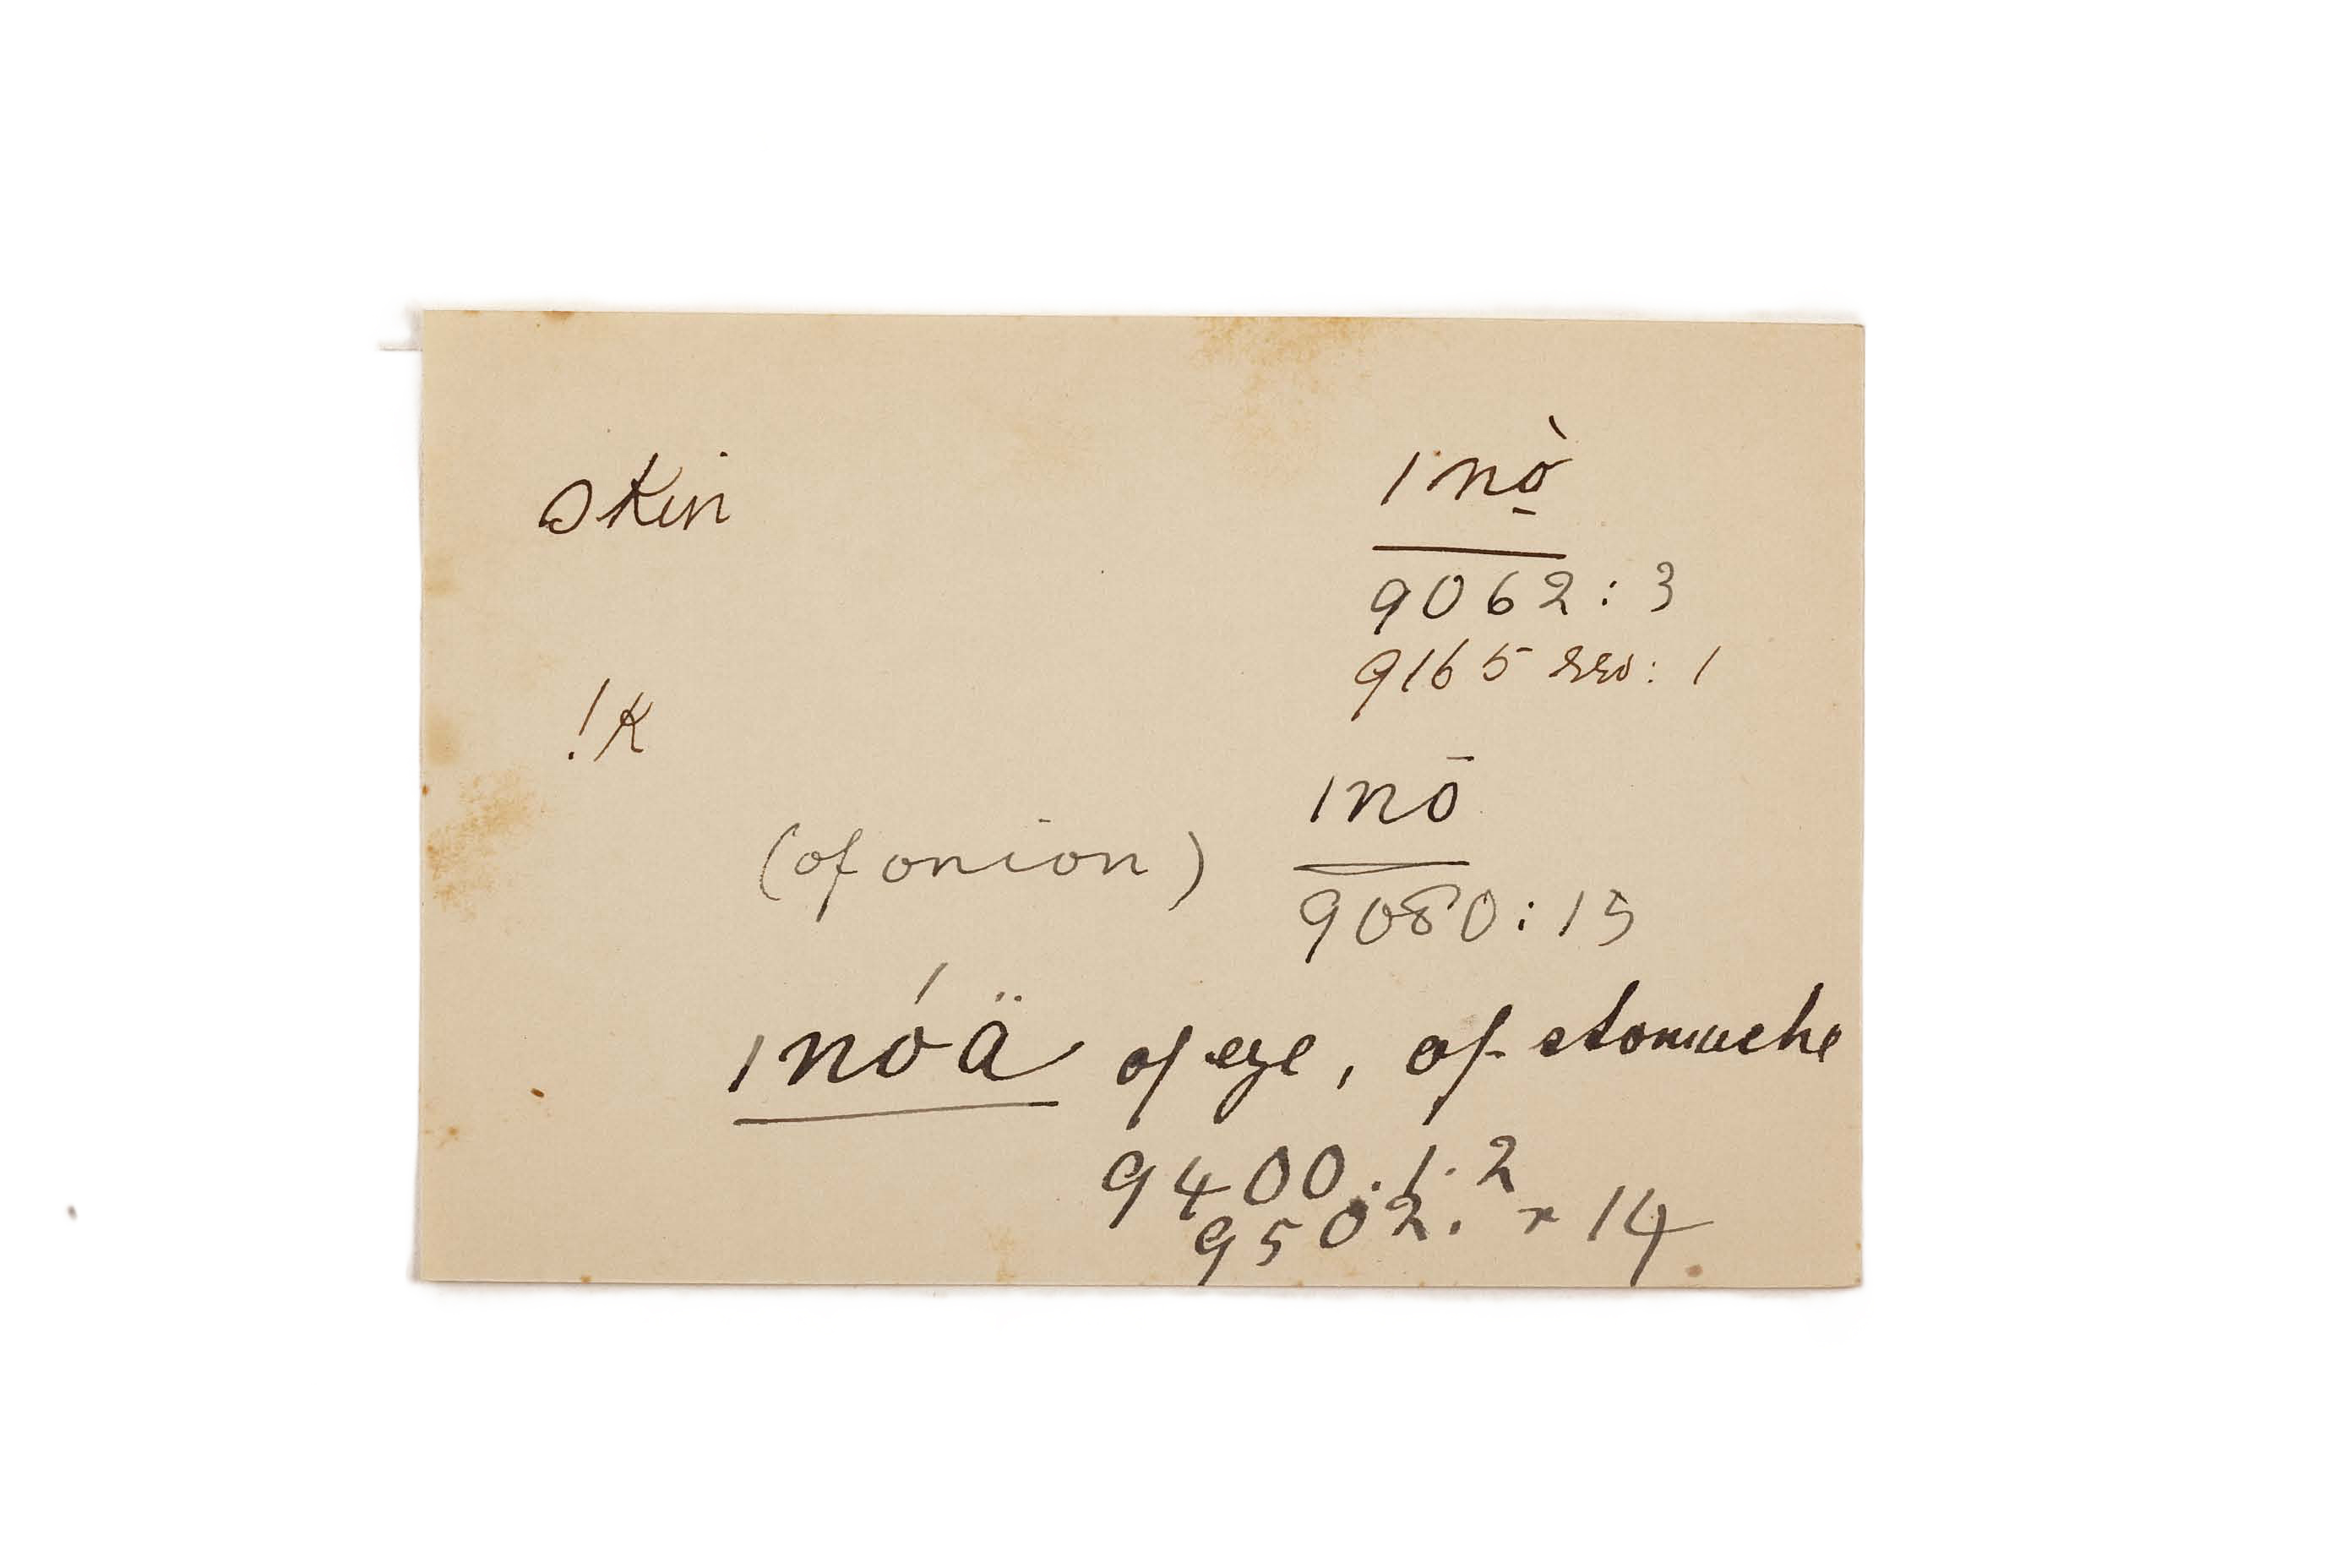 skin ǀnò̱
9062 : 3
9165 rev : 1
!k
ǀnō
(of onion)
9080 : 15
ǀnóä of eye, of stomache
9400. 1. 2
9502. r 14